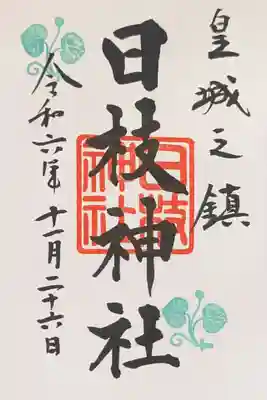 皇城之鎮
日枝神社
日枝神社
令和六年十一月二十六日